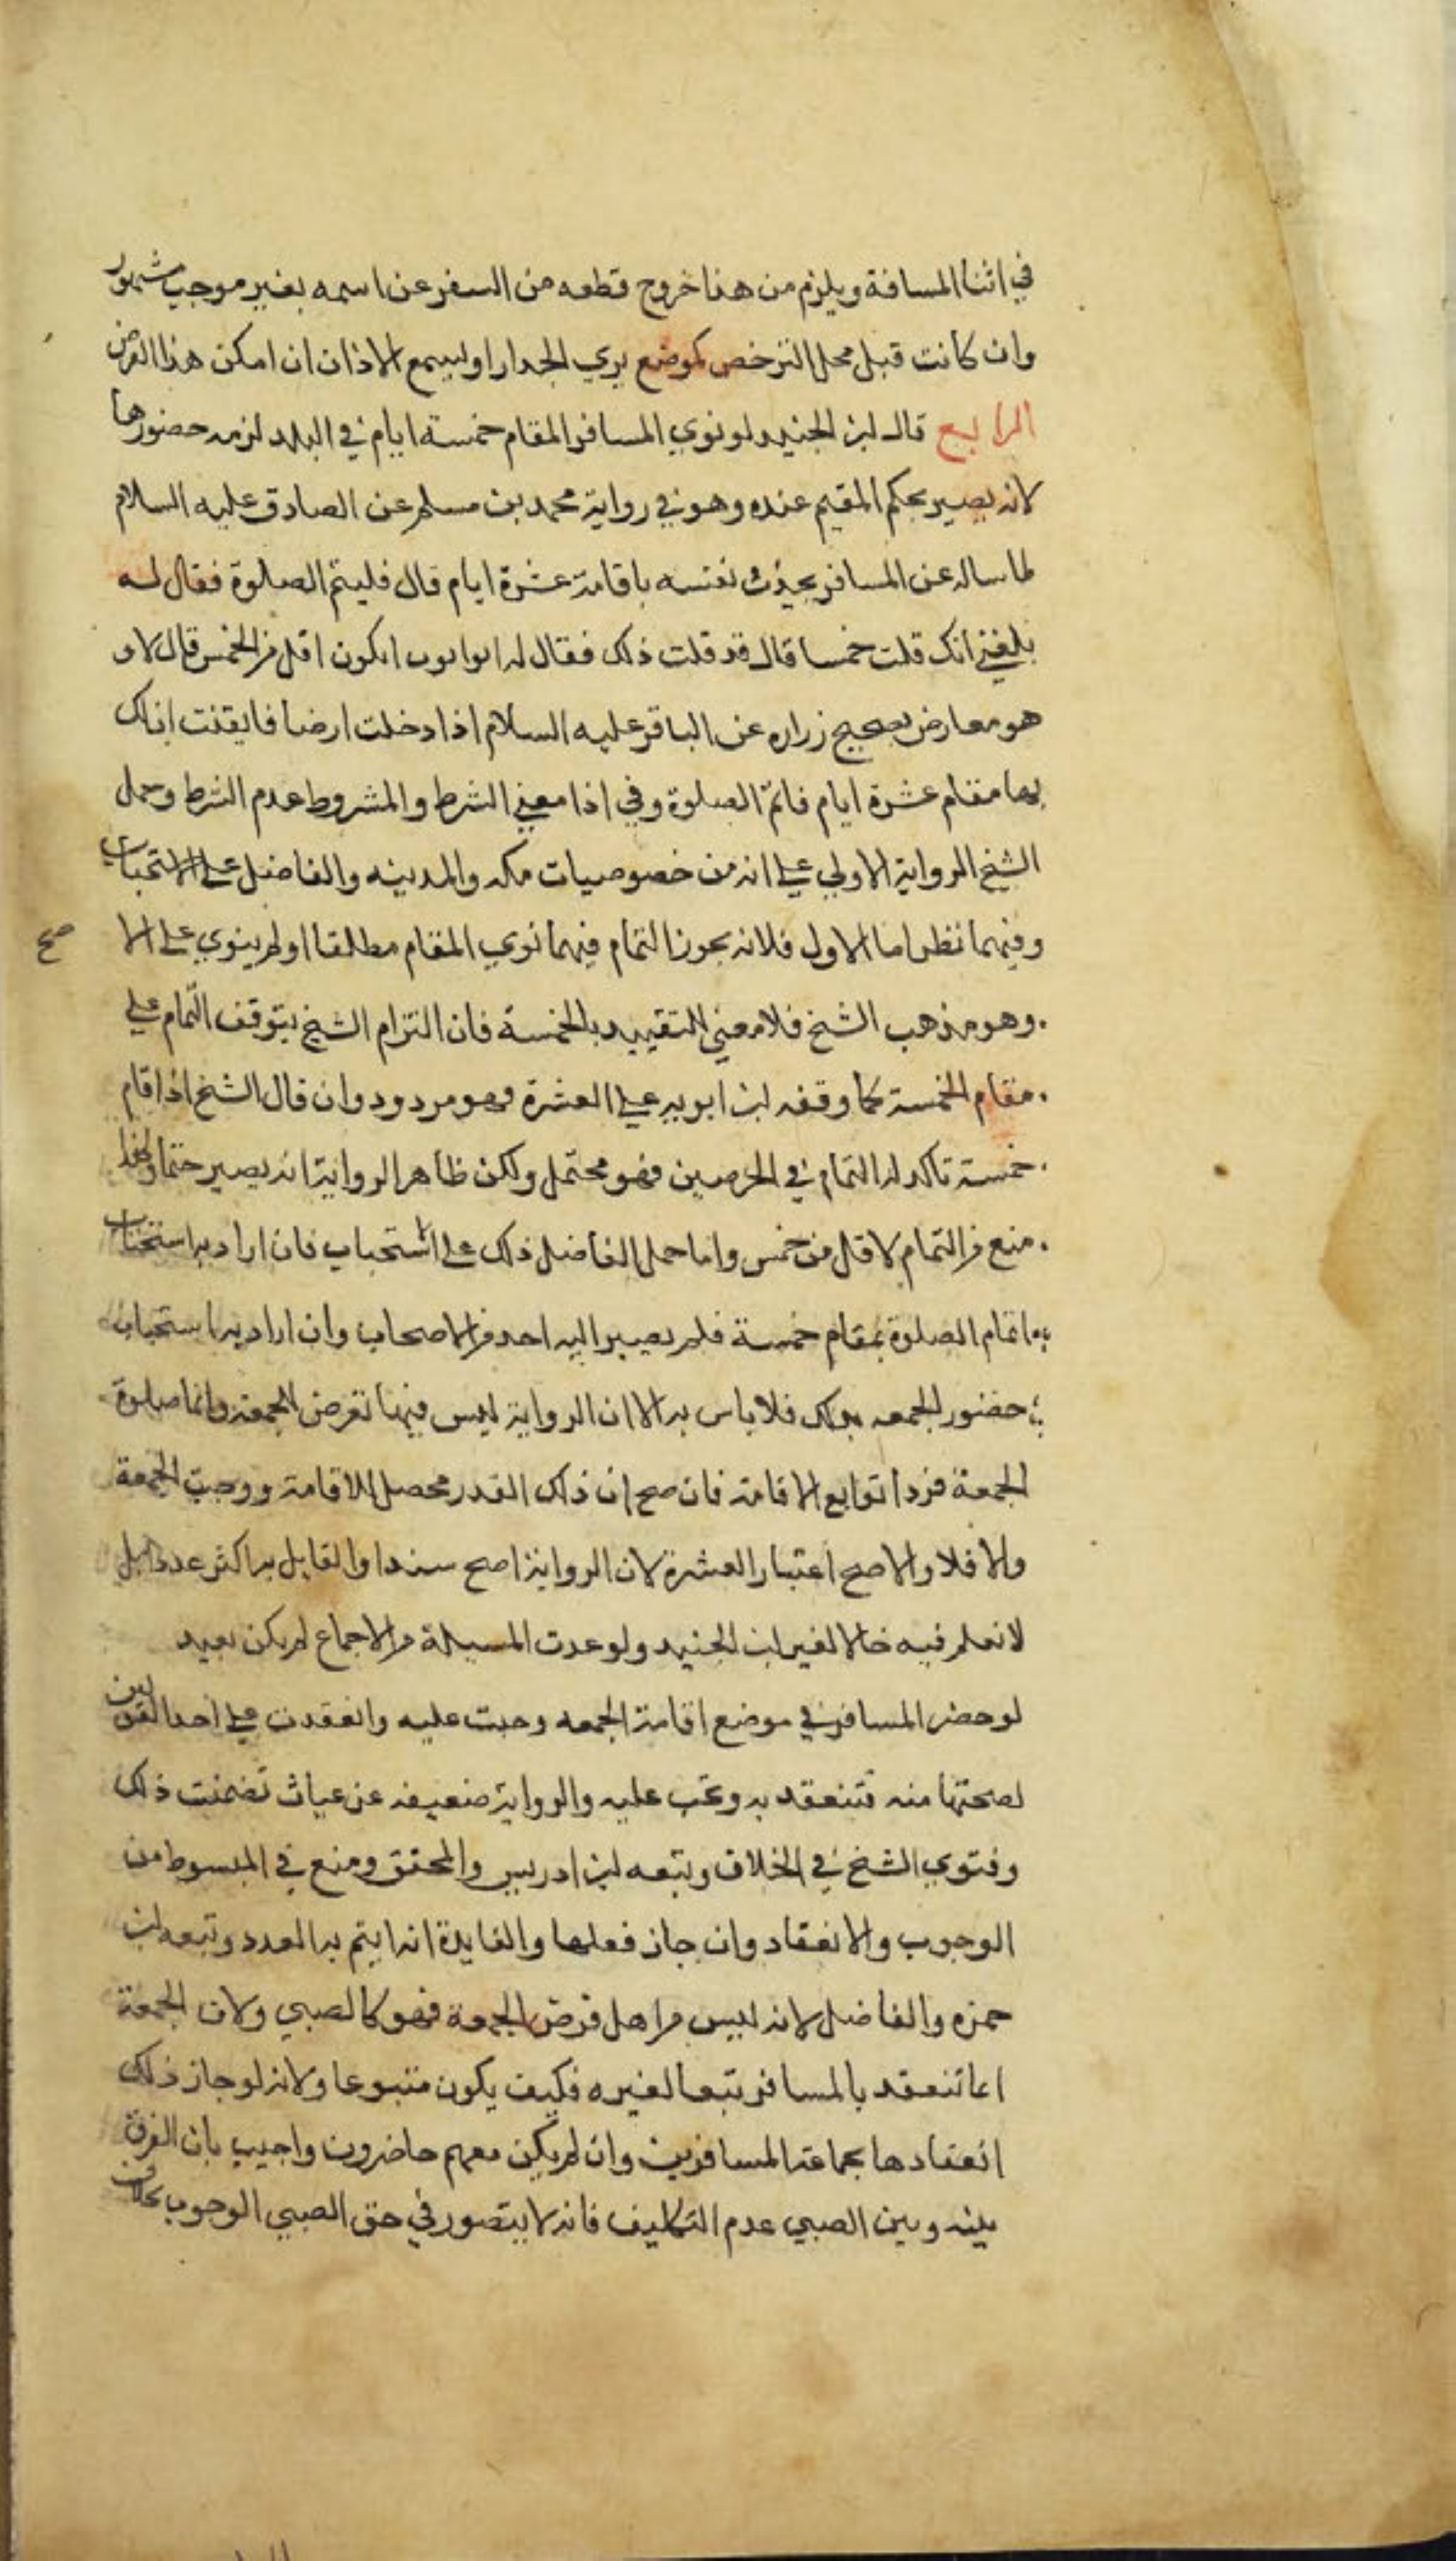 في اثنا المسافة ويلزم من هذا خروج قطعه من السفر عن اسمه بغير موجب مشهور
وان كانت قبل محل الترخص كموضع يري الجدار او ليسمع الاذان ان امكن هذا الفرض
الرابع قال ابن الجنيد لو نوي المسافر المقام خمسة ايام في البلد لزمه حضورها
لانه يصير بحكم المقيم عنده وهو في رواية محمد بن مسلم عن الصادق عليه السلام
لما ساله عن المسافر يحدث نفسه باقامة عشرة ايام قال فليتم الصلوة فقال له
بلغني انك قلت خمسا قال قد قلت ذلك فقال له ابو ايوب ايكون اقل من الخمس قال لا و
هو معارض بصحيح زراره عن الباقر عليه السلام اذا دخلت ارضا فايقنت ان لك
بها مقام عشرة ايام فاتم الصلوة وفي اذا معني الشرط والمشروط عدم الشرط وحمل
الشيخ الرواية الاولي علي انه من خصوصيات مكه والمدينه والفاضل علي الاستحباب
وفيهما نظر اما الاول فلانه يجوز التمام فيهما نوي المقام مطلقا او لم ينوي علي الا صح
وهو مذهب الشيخ فلا معني للتقييد بالخمسة فان التزام الشيخ بتوقف التمام علي
مقام الخمسة كما وقفه ابن ابويه علي العشرة فهو مردود وان قال الشيخ اذا اقام
خمسة تاكد له التمام في الحرمين فهو محتمل ولكن ظاهر الرواية انه يصير حتما ولهذا
منع من التمام لاقل من خمس واما حمل الفاضل ذلك علي استحباب فان اراد به استحباب
اتمام الصلوة بمقام خمسة فلم يصير اليه احد من الاصحاب وان اراد به استحباب
حضور الجمعه بذلك فلا باس به الا ان الرواية ليس فيها تعرض للجمعة وانما صلوة
الجمعة فرد اتوابع الاقامة فان صح ان ذلك القدر محصل للاقامة ووجبت الجمعة
والا فلا والاصح اعتبار العشرة لان الرواية اصح سندا والقايل به اكثر عددا بل
لا نعلم فيه خالا لغير ابن الجنيد ولو عدت المسيلة من الاجماع لم يكن بعيد
لو حضر المسافر في موضع اقامة الجمعه وجبت عليه وانعقدت علي احد القولين
لصحتها منه فتنعقد به وتجب عليه والرواية ضعيفه عن عياث تضمنت ذلك
وفتوي الشيخ في الخلاف وتبعه ابن ادريس والمحقق ومنع في المبسوط من
الوجوب والانعقاد وان جاز فعلها والفايدة انه ايتم به العدد وتبعه ابن
حمزه والفاضل لانه ليس من اهل فرض الجمعة فهو كالصبي ولان الجمعة
انما تنعقد بالمسافر تبعا لغيره فكيف يكون متبوعا ولانه لو جاز ذلك
انعقادها بجماعة المسافرين وان لم يكن معهم حاضرون واجيب بان الفرق
بينه وبين الصبي عدم التكليف فانه لا يتصور في حق الصبي الوجوب بخلاف